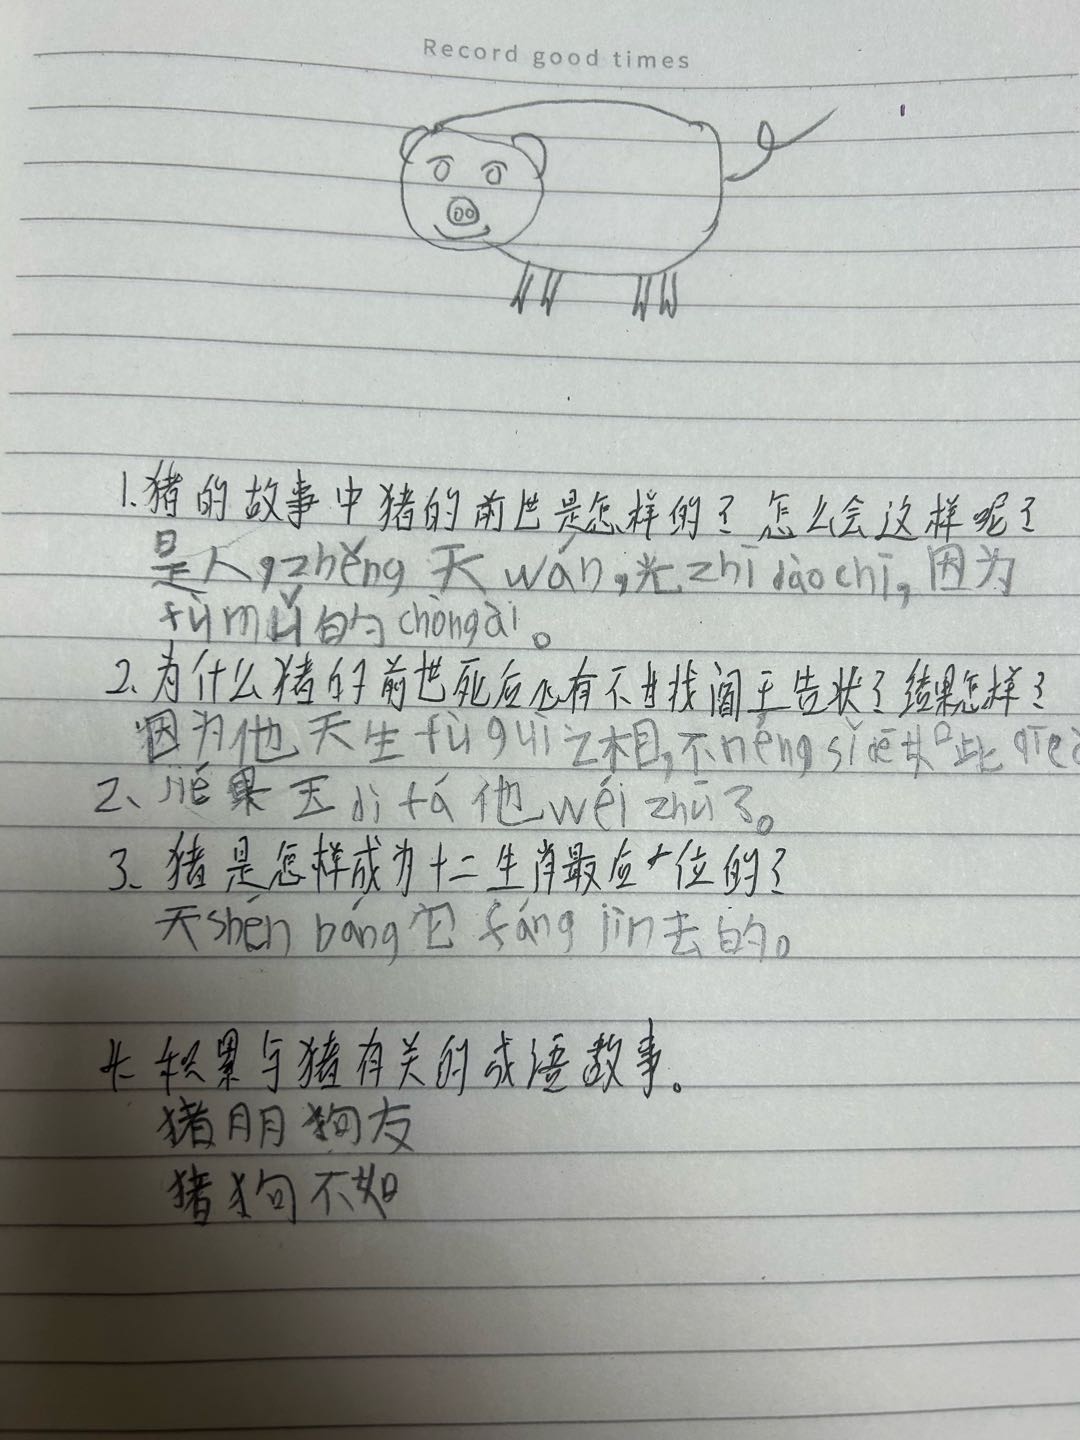 Record good times
1.猪的故事中猪的前世是怎样的？怎么会这样呢？
是人,zhěng天wán,光zhī dào chī,因为
fù mǔ的chǒng ài。
2、为什么猪的前世死应还有不甘找阎王告状？结果怎样？
因为他天生fù guì之相,不néng sǐ
2、jié果玉dì fá他wéi zhū了。
3、猪是怎样成为十二生肖最应一位的？
天shén bāng它fàng jìn去的。
4、积累与猪有关的成语故事。
猪朋狗友
猪狗不如